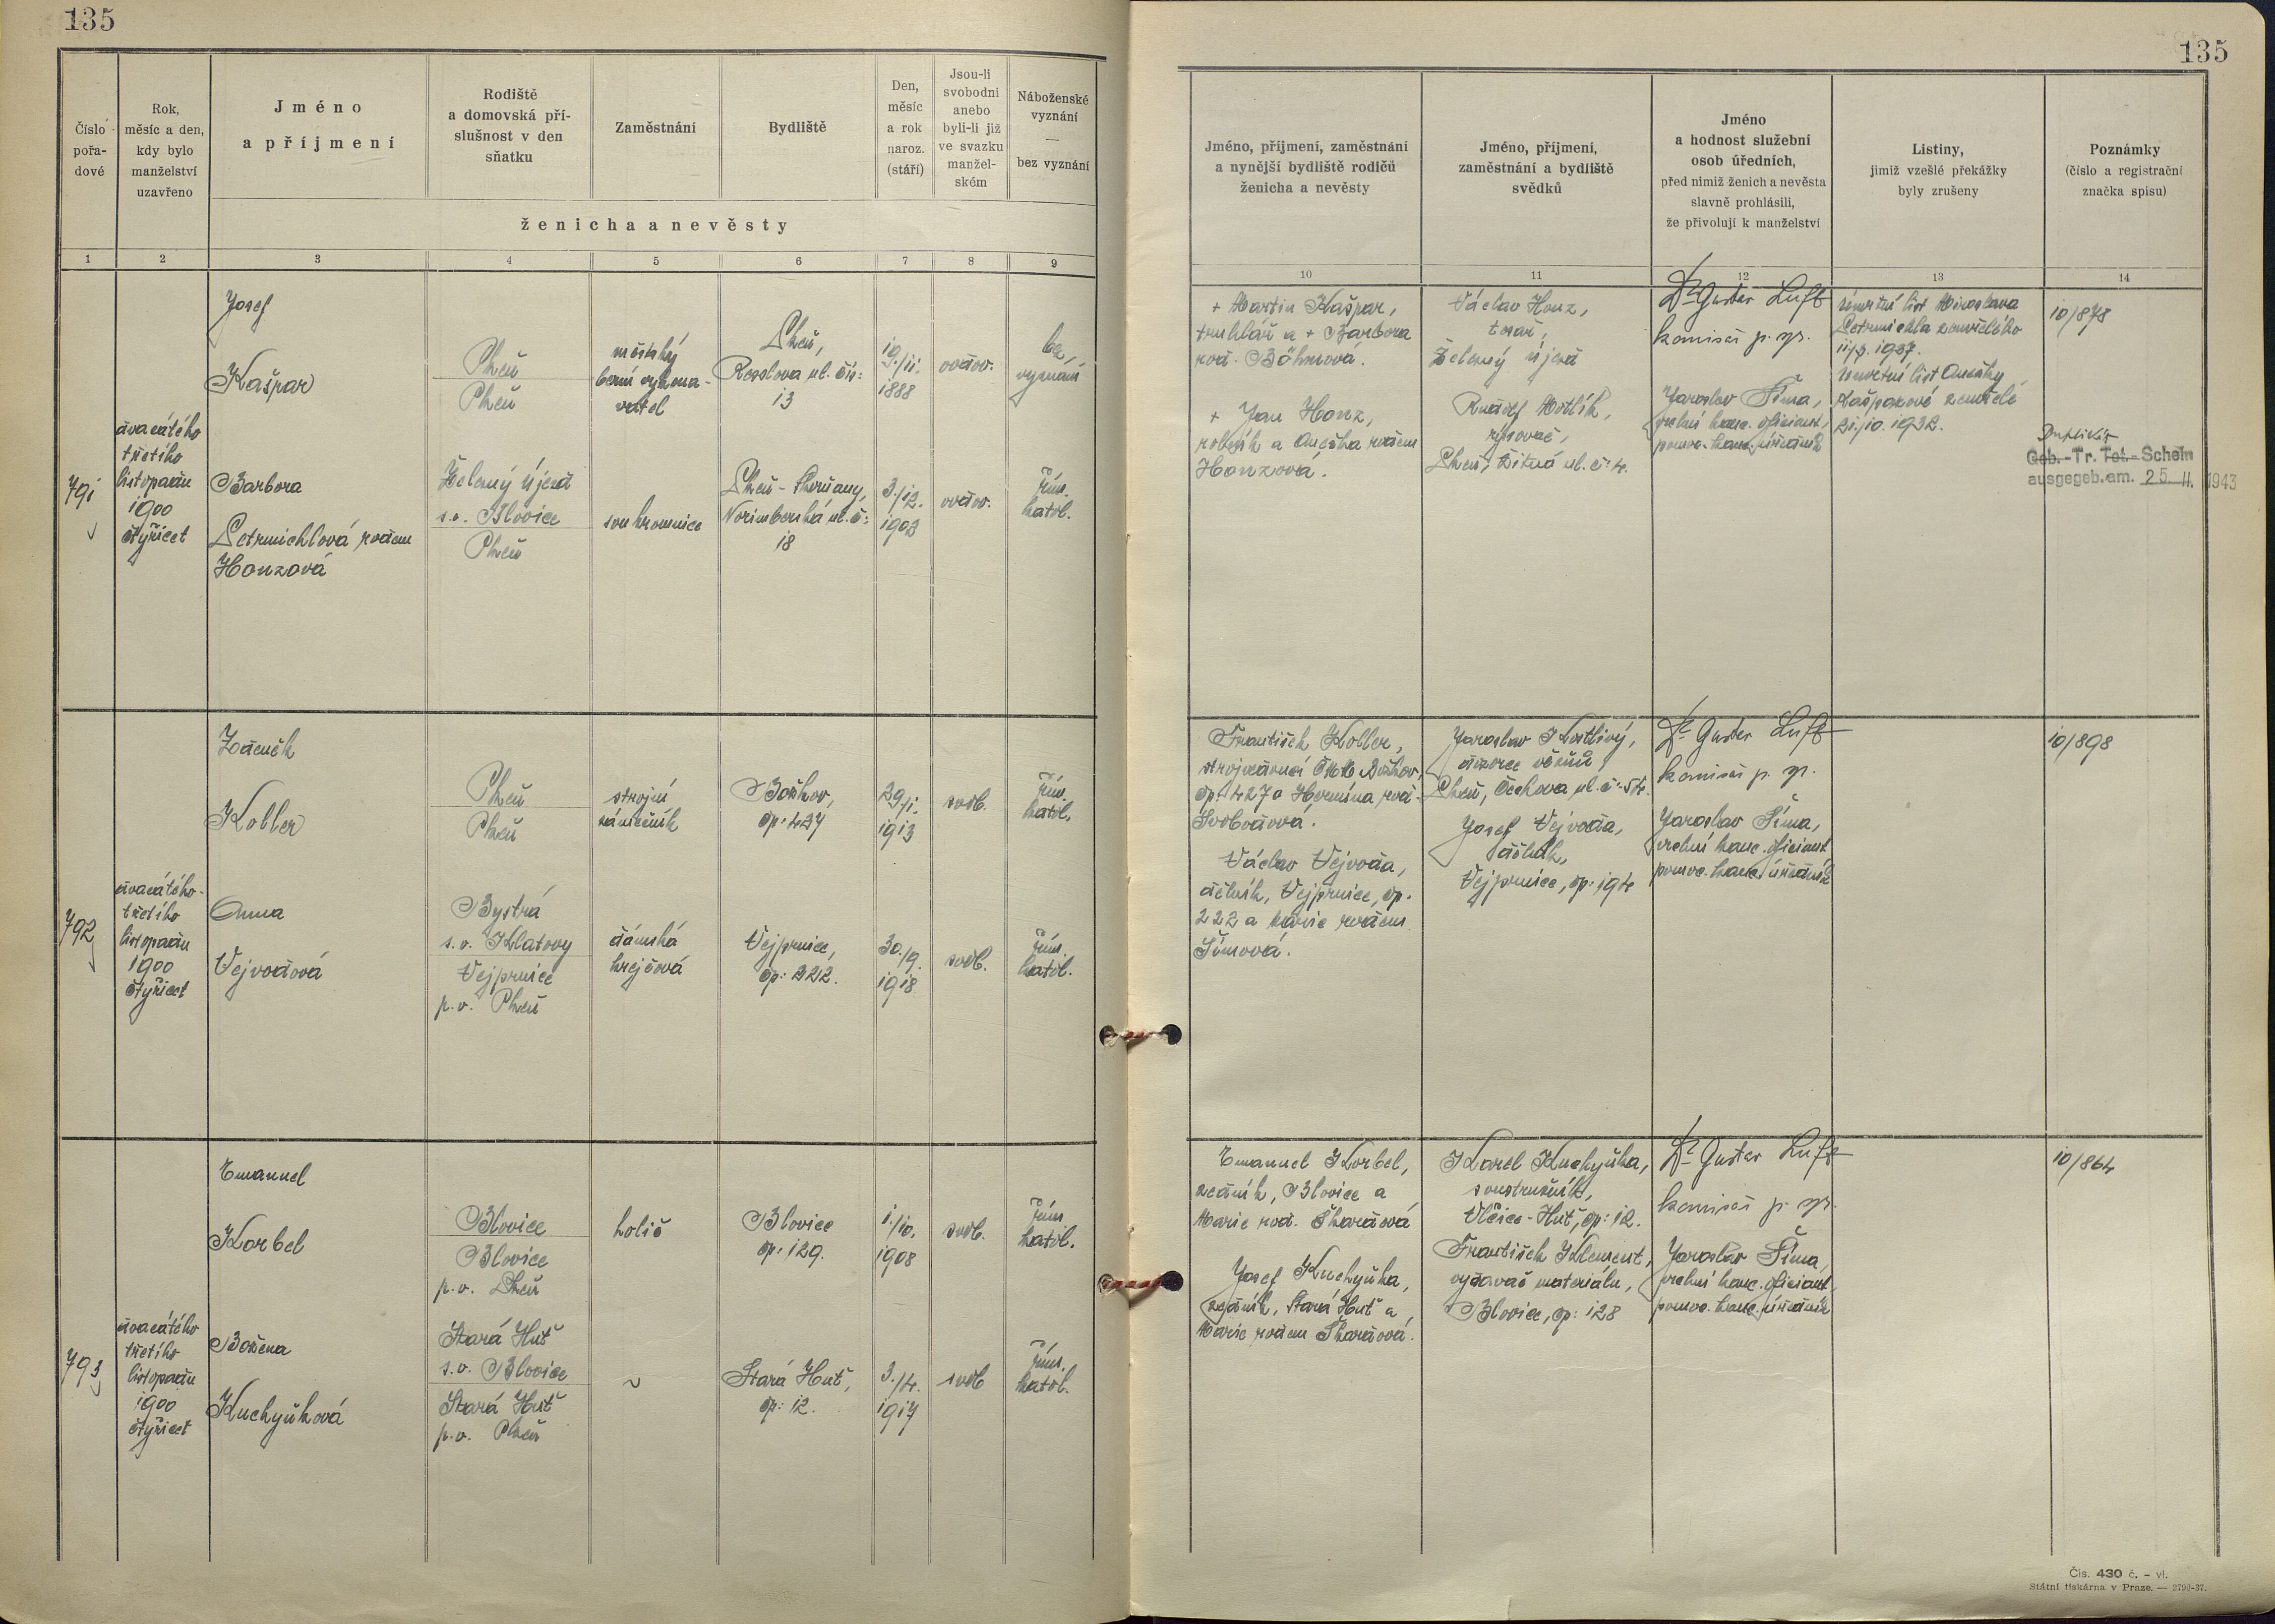 135
135
Číslo
pořa-
dové
Rok,
měsíc a den,
kdy bylo
manželství
uzavřeno
Jméno
a příjmení
Rodiště
a domovská pří-
slušnost v den
sňatku
Zaměstnání
Bydliště
Den,
měsíc
a rok
naroz.
(stáří)
Jsou-li
svobodni
anebo
byli-li již
ve svazku
manžel-
ském
Náboženské
vyznání
—
bez vyznání
ženicha a nevěsty
Jméno, příjmení, zaměstnání
a nynější bydliště rodičů
ženicha a nevěsty
Jméno, příjmení,
zaměstnání a bydliště
svědků
Jméno
a hodnost služební
osob úředních,
před nimiž ženich a nevěsta
slavně prohlásili,
že přivolují k manželství
Listiny,
jimiž vzešlé překážky
byly zrušeny
Poznámky
(číslo a registrační
značka spisu)
1 2 3 4 5 6 7 8 9
10 11 12 13 14
791
dvacátého
třetího
listopadu
1900
čtyřicet
Josef
Kašpar
Plzeň
Plzeň
městský
berní vykona-
vatel
Plzeň,
Resslova ul. čís:
13
19./11.
1888
ovdov.
bez
vyznání
Barbora
Petrmichlová rozem
Honzová
Želený Újezd
s.o. Blovice
Plzeň
soukromnice
Plzeň-Skvrňany,
Norimberská ul. č:
18
3./12.
1903
ovdov.
řím.
katol.
+ Martin Kašpar,
truhlář a + Barbora
roz. Böhmová.
+ Jan Honz,
rolník a Anežka rozem
Honzová.
Václav Honz,
tesař,
Želený Újezd
Rudolf Hotlík,
rýsovač,
Plzeň, Žitná ul. č: 4.
Dr Gustav Luft
komisař p. sp.
Jaroslav Šíma,
vrchní kanc. oficiant,
pomoc. kanc. úředník
úmrtní list Miroslava
Petrmichla zemřelého
11/3. 1937.
úmrtní list Anežky
Kašparové zemřelé
21./10. 1932.
10/878
Duplikát
Geb.-Tr. Tot.-Schein
ausgegeb. am. 25. 11. 1943
792
dvacátého-
třetího
listopadu
1900
čtyřicet
Zdeněk
Kobler
Plzeň
Plzeň
strojní
zámečník
Božkov,
čp: 427
29/1.
1913
svob.
řím.
katol.
Anna
Vejvodová
Bystrá
s.o. Klatovy
Vejprnice
p.o. Plzeň
dámská
krejčová
Vejprnice,
čp: 222.
30./9.
1918
svob.
řím.
katol.
František Kobler,
strojvedoucí ČMD Božkov,
čp: 427 a Hermína roz.
Svobodová.
Václav Vejvoda,
dělník, Vejprnice, čp.
222 a Marie rozem
Šímová.
Jaroslav Kostlivý,
dozorce vězňů,
Plzeň, Čechova ul. č: 54.
Josef Vejvoda,
dělník,
Vejprnice, čp: 194
Dr Gustav Luft
komisař p. sp.
Jaroslav Šíma,
vrchní kanc. oficiant
pomoc. kanc. úředník
10/898
793
dvacátého
třetího
listopadu
1900
čtyřicet
Emanuel
Korbel
Blovice
Blovice
p.o. Plzeň
holič
Blovice
čp: 129.
1./10.
1908
svob.
řím.
katol.
Božena
Kuchyňková
Stará Huť
s.o. Blovice
Stará Huť
p.o. Plzeň
~
Stará Huť,
čp: 12.
3./4.
1917
svob
řím.
katol.
Emanuel Korbel,
zedník, Blovice a
Marie roz. Škardová
Josef Kuchyňka,
zedník, Stará Huť a
Marie rozem Škardová.
Karel Kuchyňka,
soustružník,
Vlčice-Huť, čp: 12.
František Klement,
vydavač materiálu,
Blovice, čp: 128
Dr Gustav Luft
komisař p. sp.
Jaroslav Šíma,
vrchní kanc. oficiant,
pomoc. kanc. úředník
10/864
Čís. 430 č. - vl.
Státní tiskárna v Praze. — 2790-37.